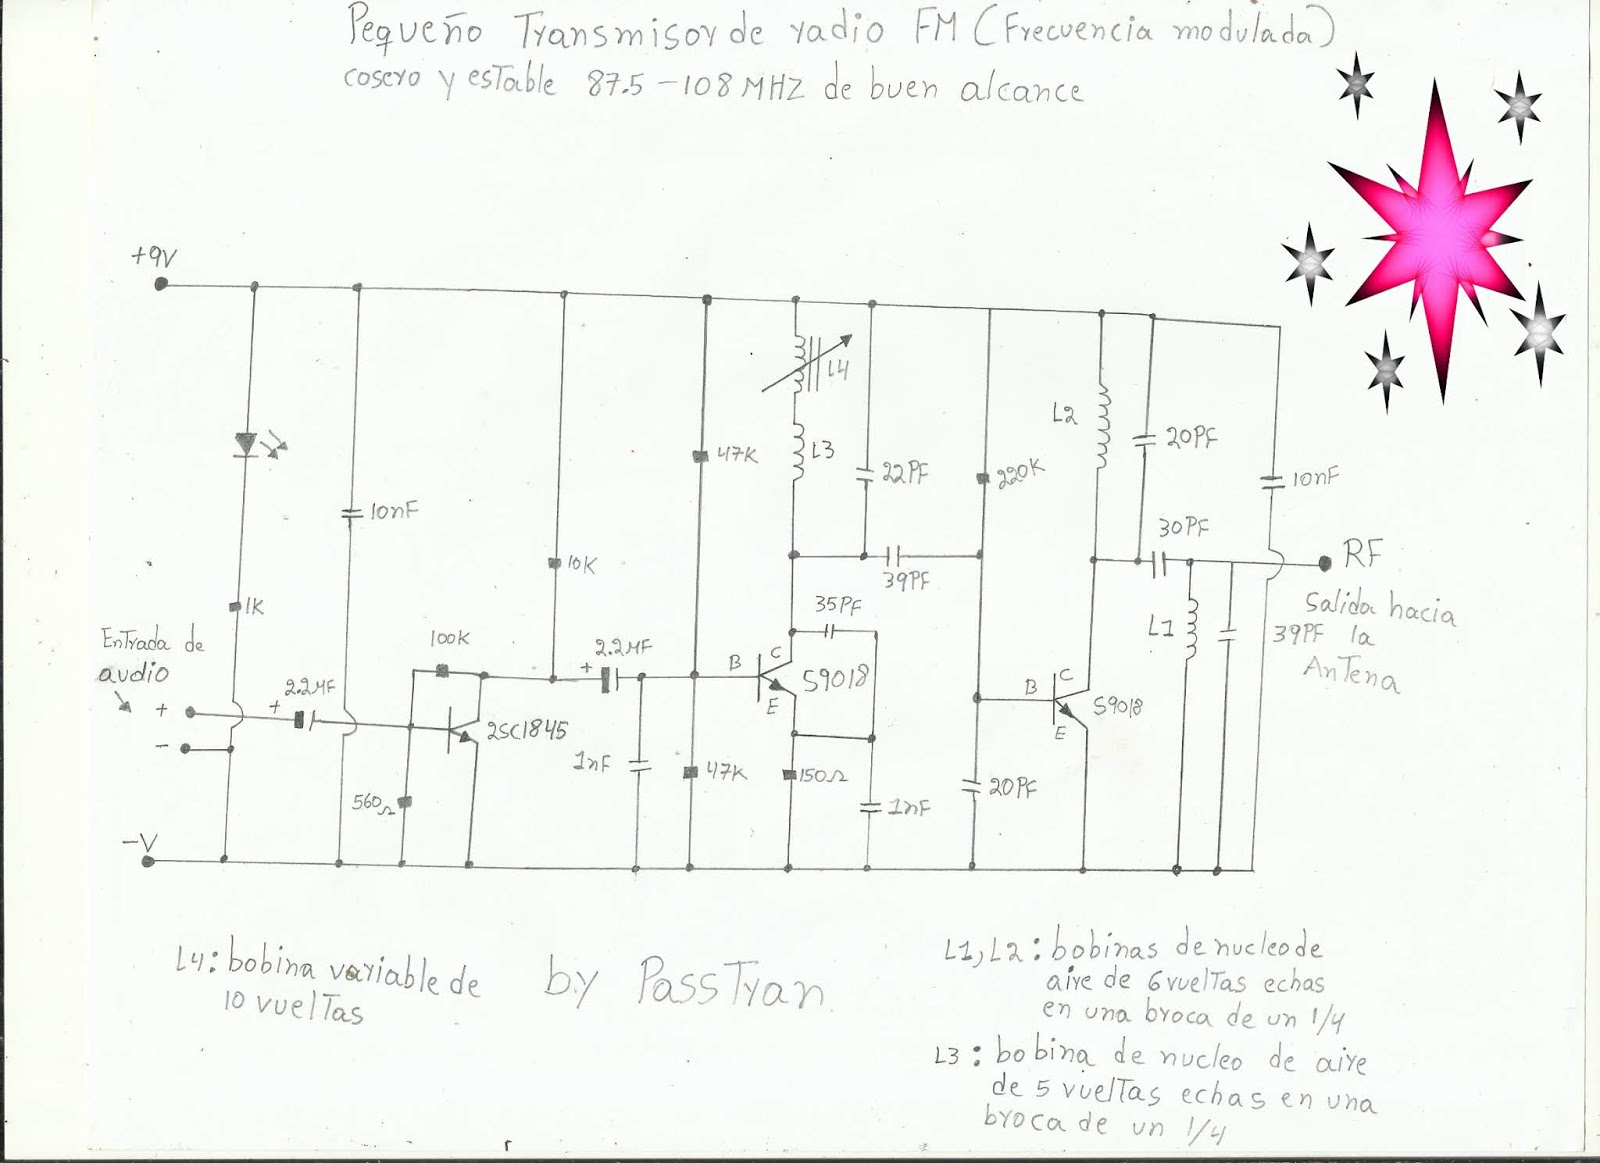 Pequeño Transmisor de radio FM (Frecuencia modulada)
cosero y esTable 87.5 - 108 MHZ de buen alcance
+9V
L4
L2
20PF
47K
L3
22PF
220K
10nF
10nF
30PF
RF
10K
39PF
1K
35PF
Salida hacia
la
AnTena
EnTrada de
audio
100K
2.2MF
L1
39PF
2.2MF
B
C
E
S9018
+
+
+
-
2SC1845
B
C
E
S9018
1nF
47K
150Ω
560Ω
20PF
1nF
-V
L4: bobina variable de
10 vuelTas
by PassTran
L1, L2: bobinas de nucleo de
aire de 6 vuelTas echas
en una broca de un 1/4
L3: bobina de nucleo de aire
de 5 vuelTas echas en una
broca de un 1/4